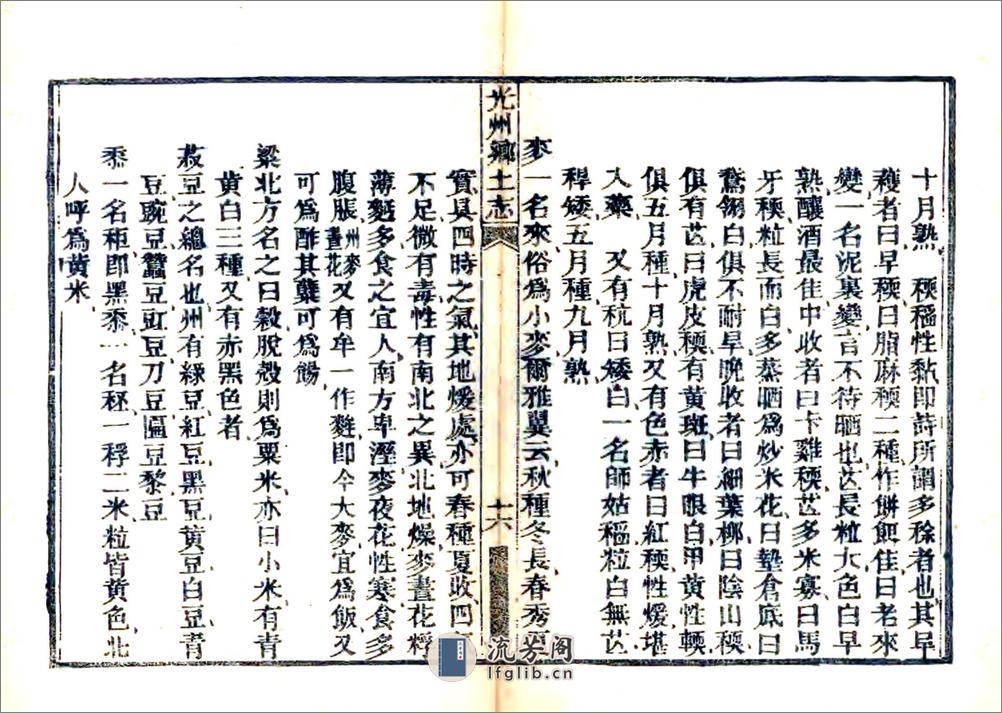 十月熟　稬稻性黏即詩所謂多稌者也其早
穫者曰早稬曰脂麻稬二種作餅餌佳曰老來
變一名泥裏變言不待晒也芒長粒大色白早
熟釀酒最佳中收者曰卡雞稬芒多米寡曰馬
牙稬粒長而白多蒸晒爲炒米花曰墊倉底曰
鵞翎白俱不耐旱晚收者曰細葉椰曰陰山稬
俱有芒曰虎皮稬有黄斑曰牛眼白甲黄性輭
俱五月種十月熟又有色赤者曰紅稬性煖堪
入藥　又有秔曰矮白一名師姑稻粒白無芒
稈矮五月種九月熟
麥一名來俗爲小麥爾雅翼云秋種冬長春秀夏
光州鄉土志
十六
實具四時之氣其地煖處亦可春種夏收四
不足微有毒性有南北之異北地燥麥晝花稃
薄麪多食之宜人南方卑溼麥夜花性寒食多
腹脹州麥晝花又有牟一作麰即今大麥宜爲飯又
可爲酢其糵可爲餳
粱北方名之曰穀脫殼則爲粟米亦曰小米有青
黄白三種又有赤黑色者
菽豆之總名也州有綠豆紅豆黑豆黄豆白豆青
豆豌豆蠶豆豇豆刀豆㔶豆黎豆
黍一名秬即黑黍一名秠一稃二米粒皆黄色北
人呼爲黄米
流芳阁
lfglib.cn